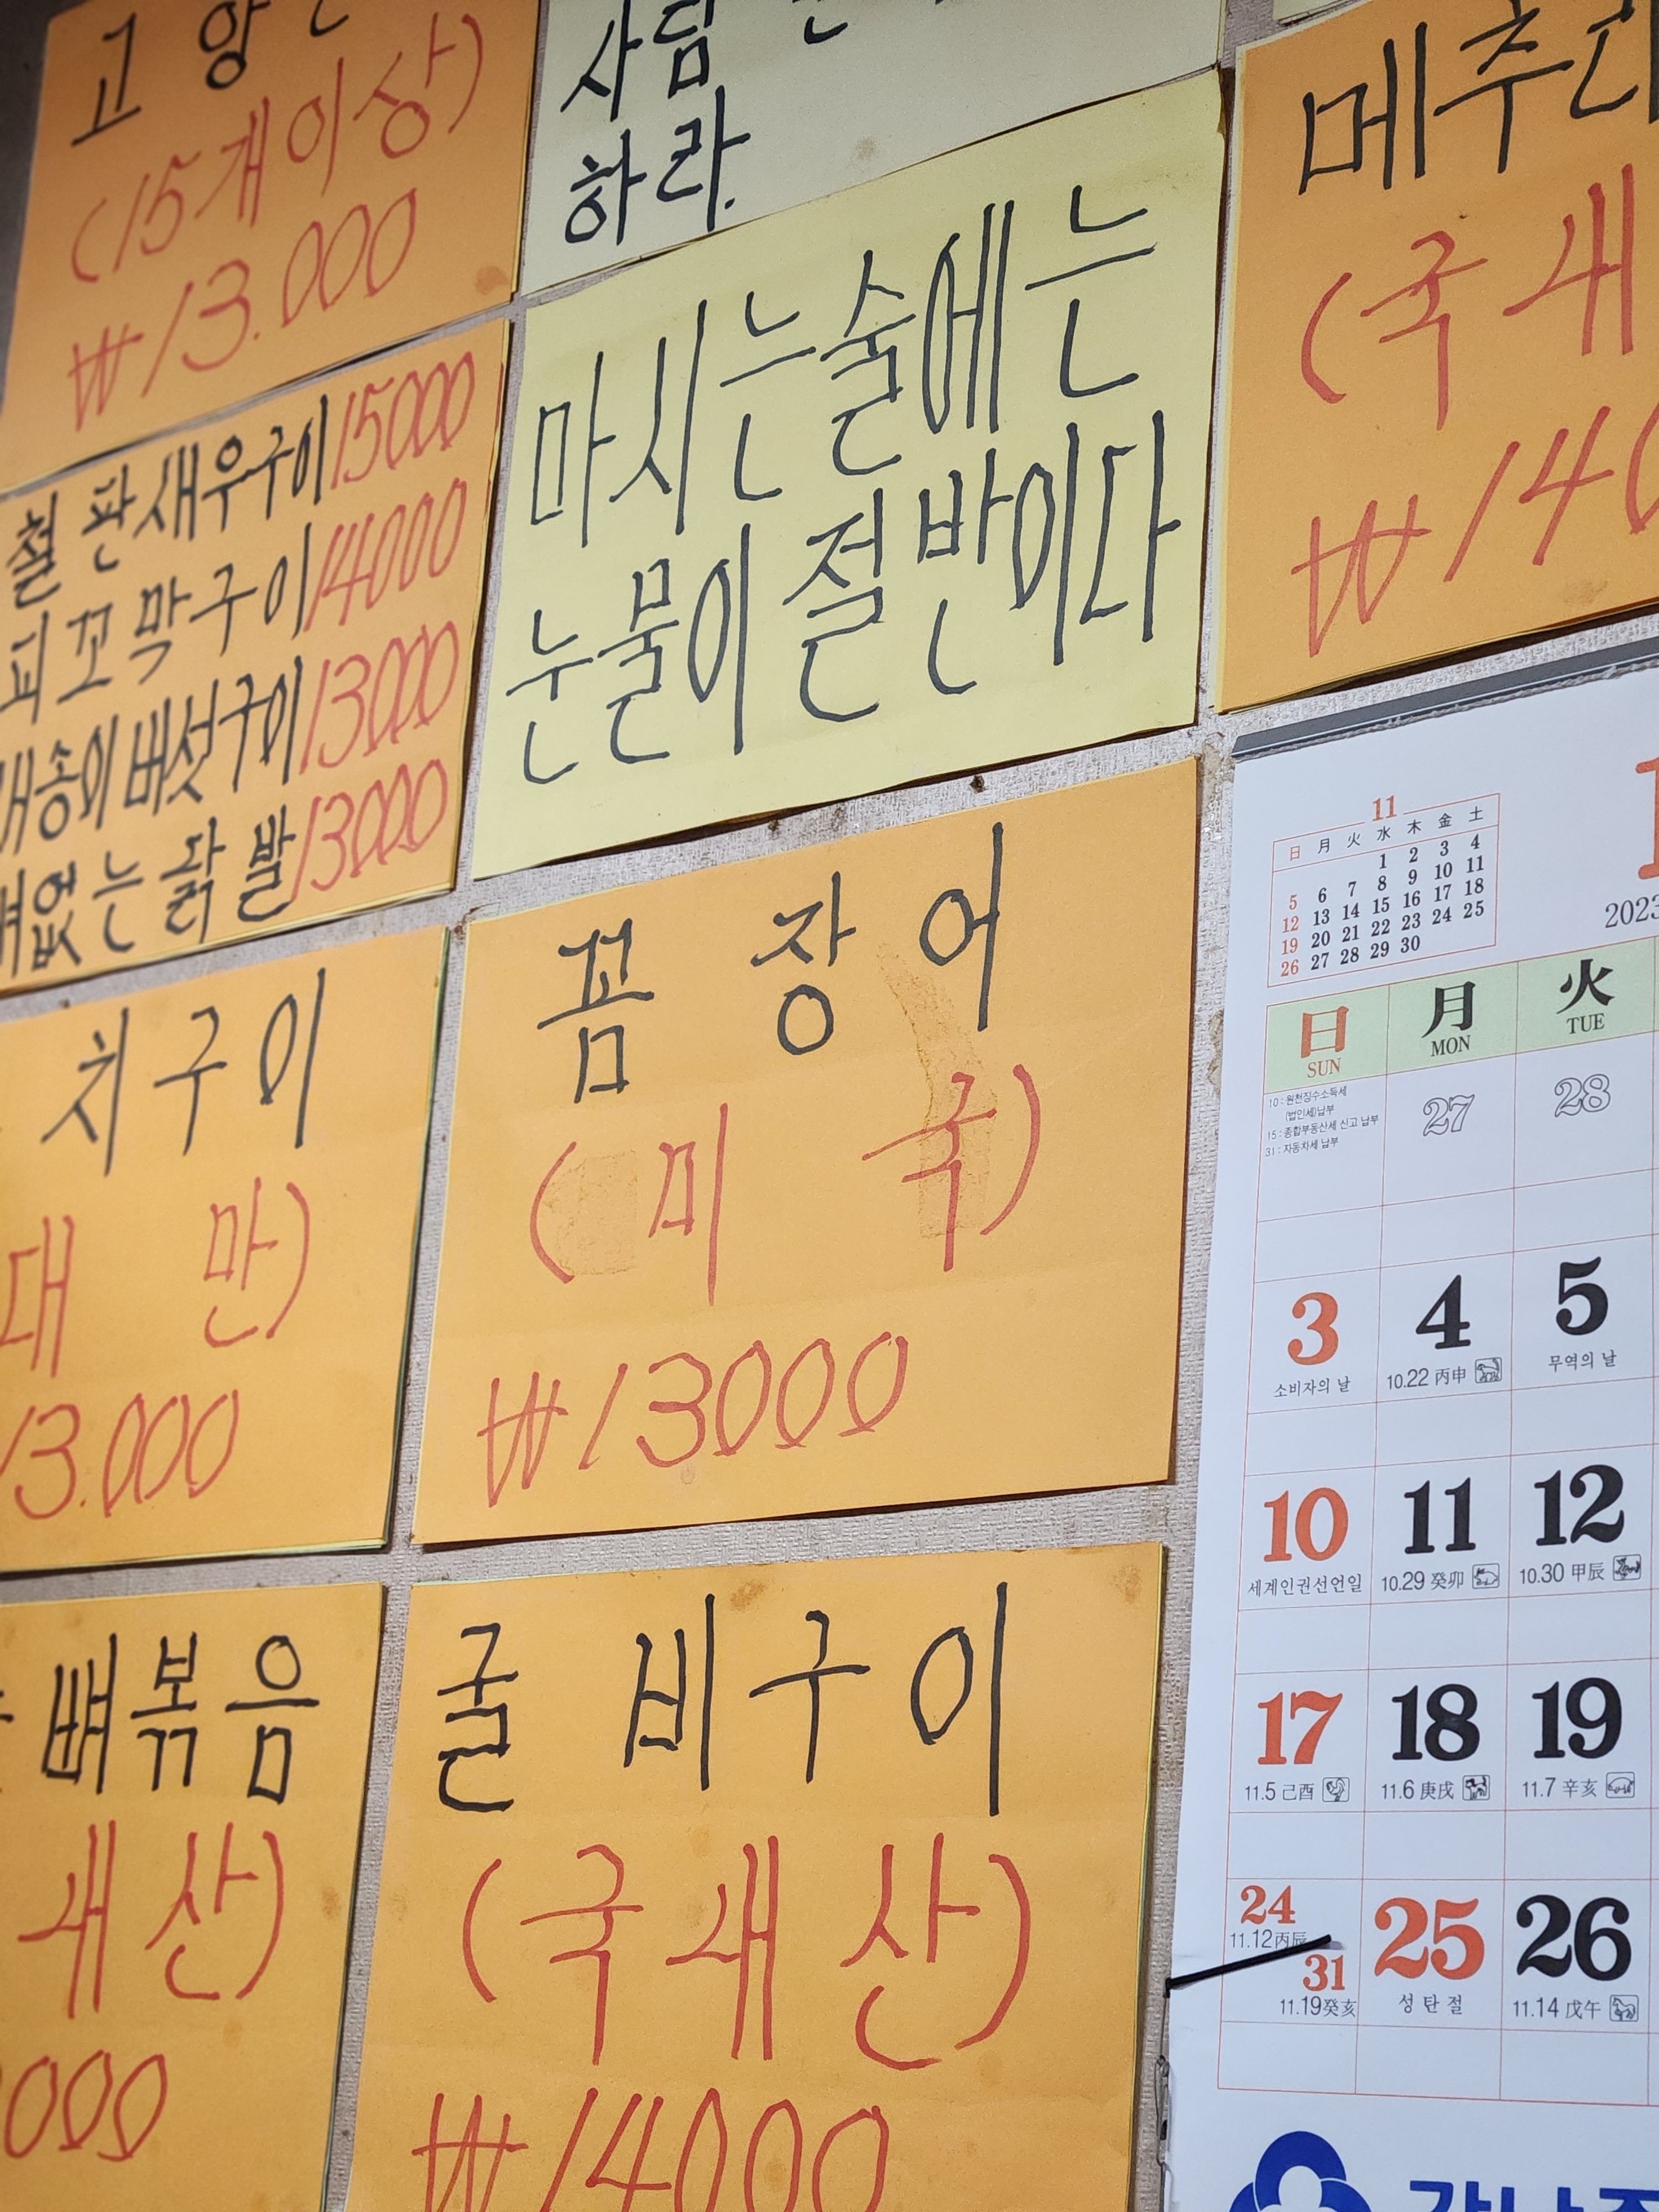 고 양
(15개이상)
₩13.000
사담
하라.
메추리
(국내
₩140
마시는술에는
눈물이 절반이다
철판새우구이15000
피꼬막구이14000
새송이버섯구이13000
뼈없는 닭발13000
치구이
대 만)
13.000
꼼 장 어
(미 국)
₩13000
뼈볶음
내산)
000
굴 비구이
(국내산)
₩14000
11
日 月 火 水 木 金 土
1 2 3 4
5 6 7 8 9 10 11
12 13 14 15 16 17 18
19 20 21 22 23 24 25
26 27 28 29 30
2023
日 月 火
SUN MON TUE
10 : 원천징수소득세
(법인세)납부
15 : 종합부동산세 신고 납부
31 : 자동차세 납부
27 28
3 4 5
소비자의 날 10.22 丙申 무역의 날
10 11 12
세계인권선언일 10.29 癸卯 10.30 甲辰
17 18 19
11.5 己酉 11.6 庚戌 11.7 辛亥
24 25 26
11.12丙辰
31
11.19癸亥 성탄절 11.14 戊午